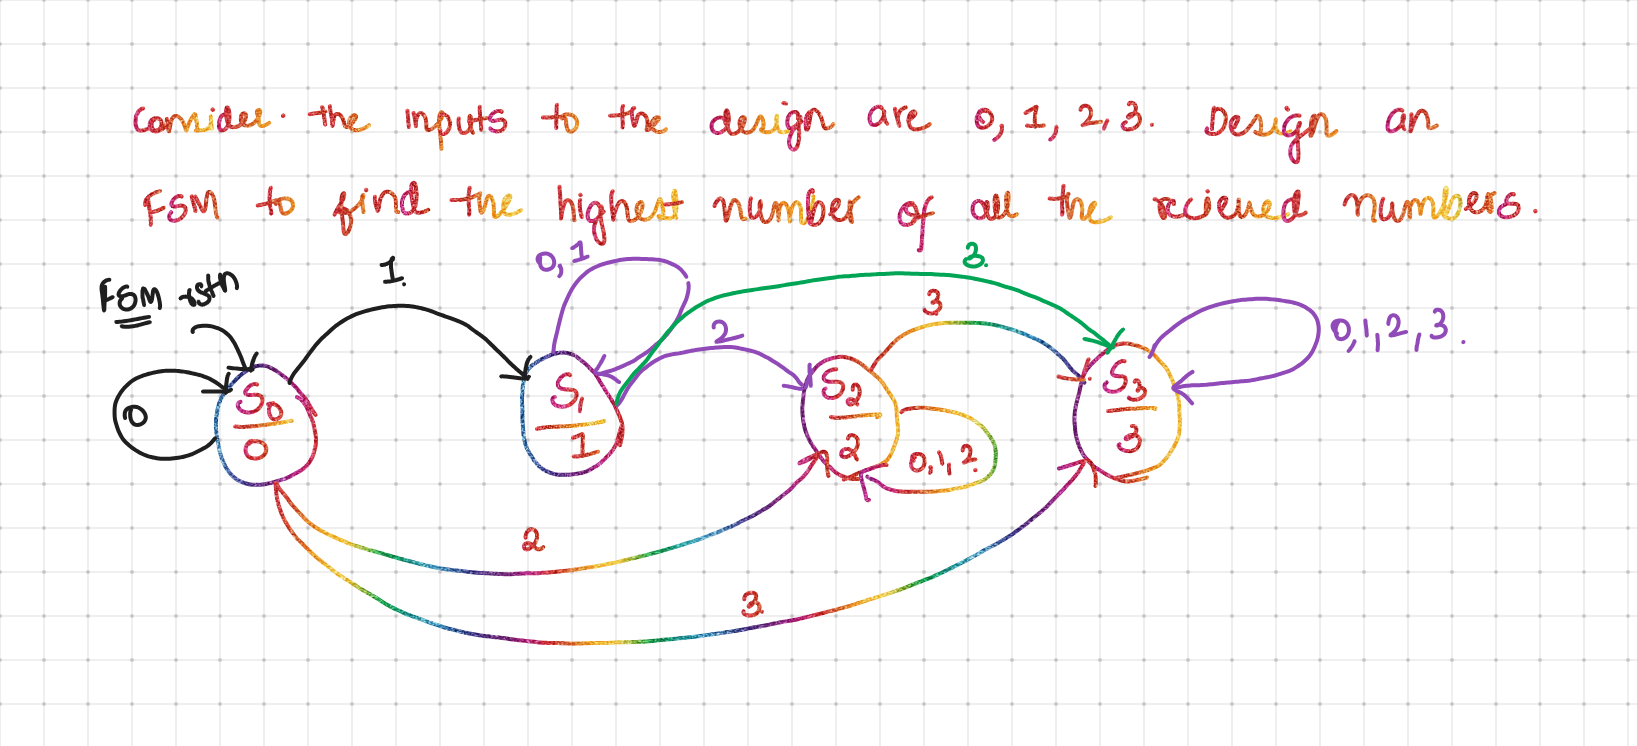 Consider. the inputs to the design are 0, 1, 2, 3. Design an
FSM to find the highest number of all the recieved numbers.
0, 1
3.
1.
FSM rstn
3
2
0, 1, 2, 3.
0
S0
0
S1
1
S2
2
S3
3
0, 1, 2.
2
3